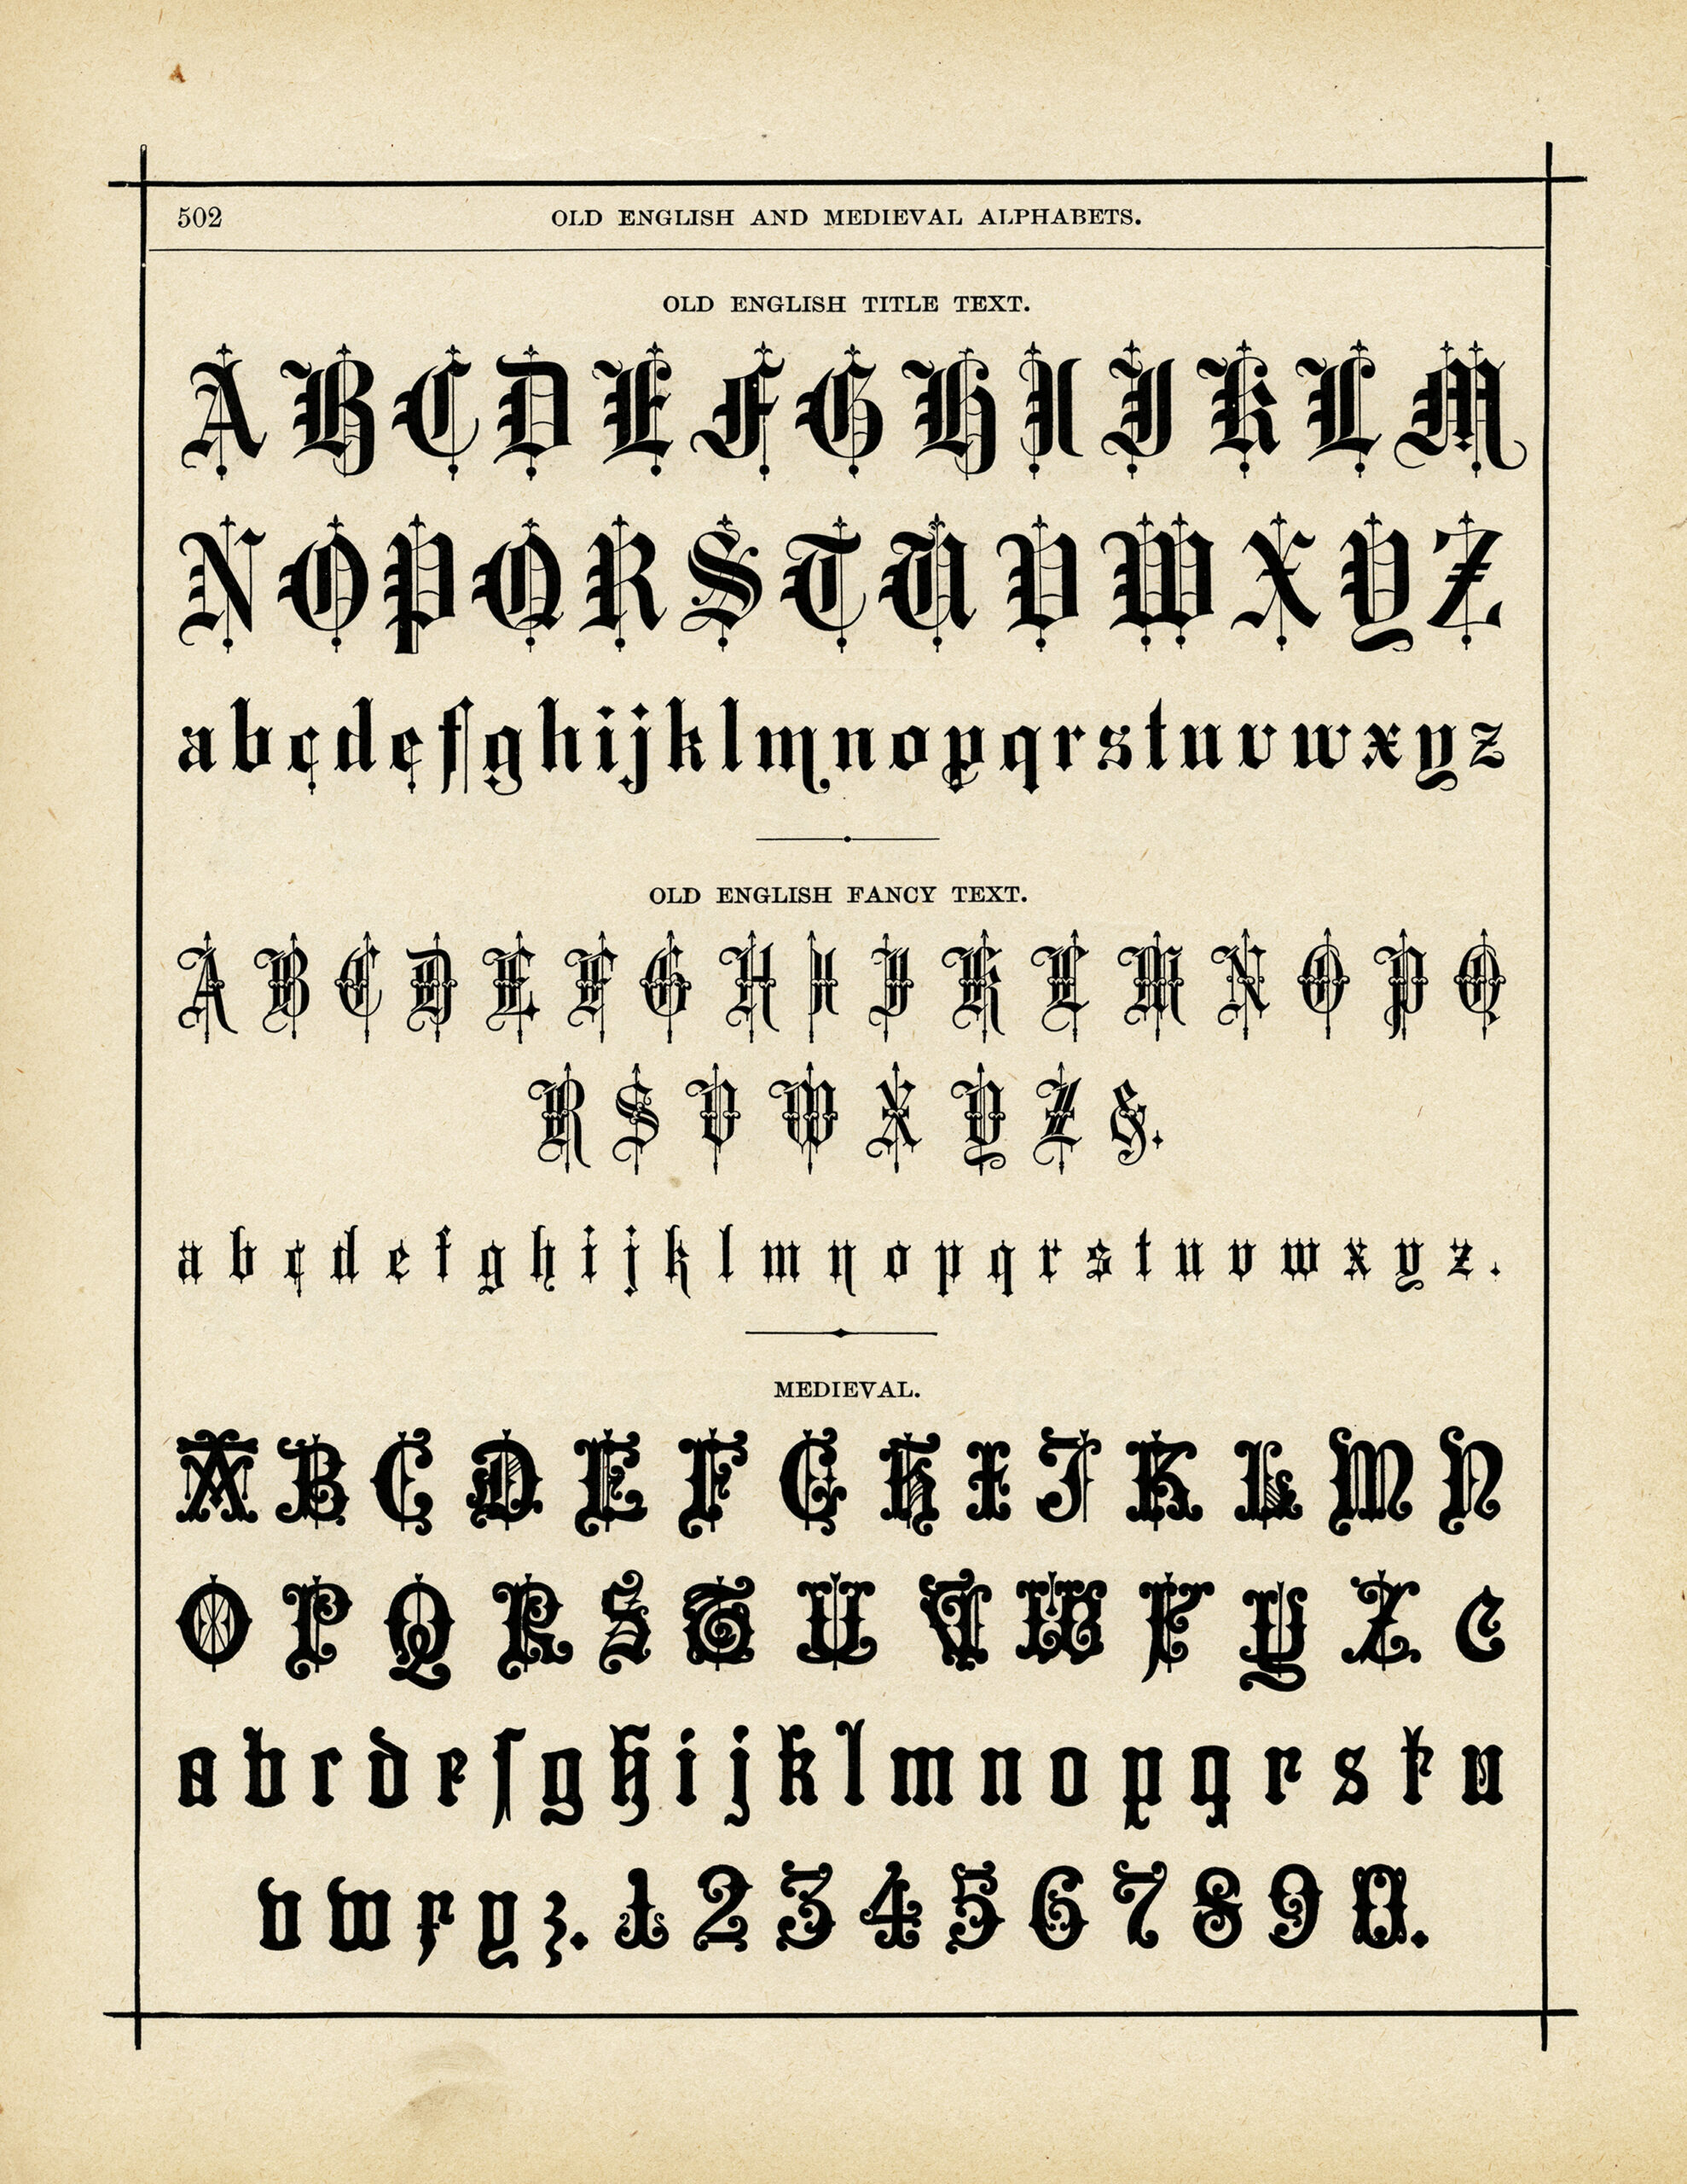 502 OLD ENGLISH AND MEDIEVAL ALPHABETS.
OLD ENGLISH TITLE TEXT.
A B C D E F G H I J K L M
N O P Q R S T U V W X Y Z
a b c d e f g h i j k l m n o p q r s t u v w x y z
OLD ENGLISH FANCY TEXT.
A B C D E F G H I J K L M N O P Q
R S V W X Y Z &.
a b c d e f g h i j k l m n o p q r s t u v w x y z.
MEDIEVAL.
A B C D E F G H I J K L M N
O P Q R S T U V W X Y Z C
a b c d e f g h i j k l m n o p q r s t u
v w x y z. 1 2 3 4 5 6 7 8 9 0.